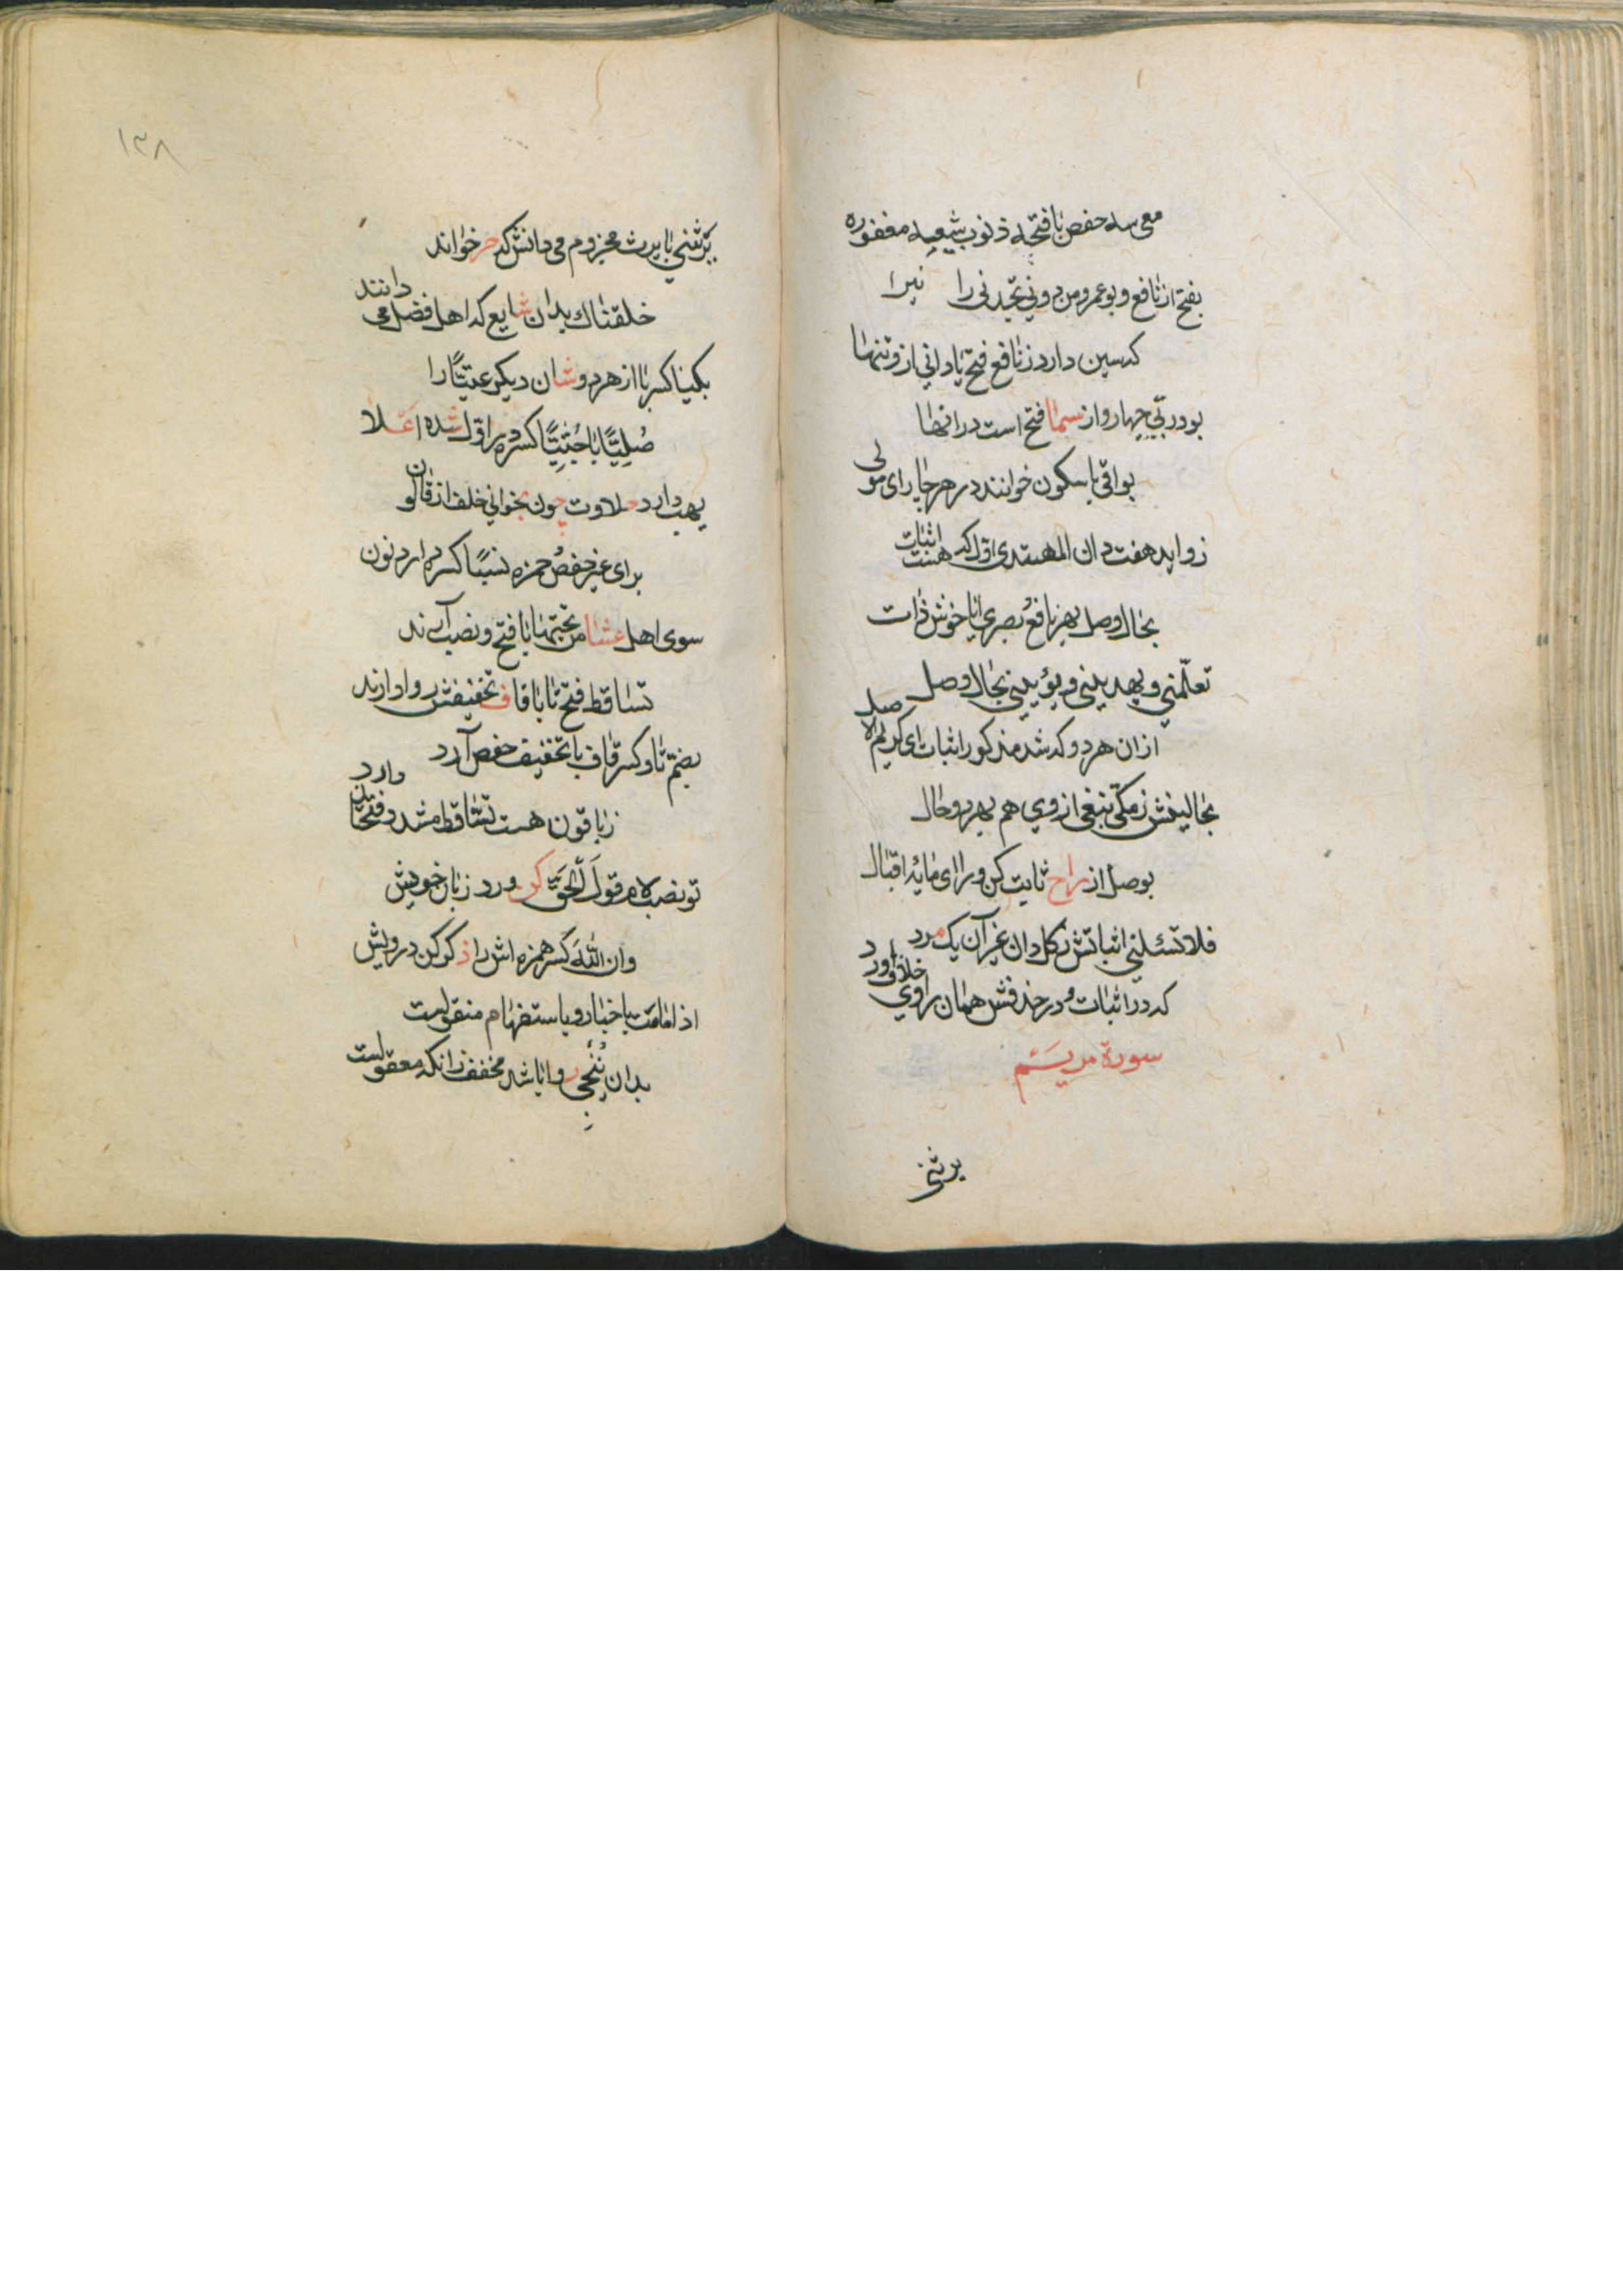 معی سه حفص بافتحه ذنوب شیعه مغفوره
بفتح از نافع و بوعمرو من دونی تجدنی را نیرا
که سین دارد ز نافع فتح یا دانی از و تنها
بود ربّی چهار و از سما فتح است در انها
بواقی با سکون خوانند در هر جا برای مولی
زواید هفت دان المهتدی اوّل که اثبات هست
بحال وصل بهر نافع و بصری ایا خوش ذات
تعلّمنی و یهدینی و یؤتینی بحال وصل
ازان هر دو که شد مذکور اثبات ای کریم الاصل
بحالینش ز مکّی نبغی از وی هم بهر دو حال
بوصل از راح ثابت کن و را ای مایهٔ اقبال
فلا تسئلنی اثباتش بکل دان غیر آن یک مرد
که در اثبات و در حذفش همان راوی خلاف آورد
سورة مریم
یرثنی
۱۳۸
یرثنی با یرث مجزوم می دانش که حر خوانند
خلقناک بدان شایع که اهل فضل می دانند
بکیّا کسر با از هر دو شان دیگر عتیّا را
صُلِیًّا با جُثِیًّا کسر در اوّل شده اعلا
یهب دارد حلاوت چون بخوانی خلف از قالون
برای غیر حفص و حمزه نسیًا کسره دارد نون
سوی اهل عشا من تحتها با فتح و نصب آرند
تساقط فتح تا با قاف تخفیفش روا دارند
بضمّ تا و کسر قاف با تخفیف حفص آرد
ز باقون هست تسّاقط مشدد فتحتان دارد
تو نصب لام قولَ الحق کن ورد زبان خویش
وان الله کسر همزه اش را ذکر کن درویش
اذا مامت باخبار و باستفهام منقولست
بدان ننجی روا باشد مخفف زانکه معقولست